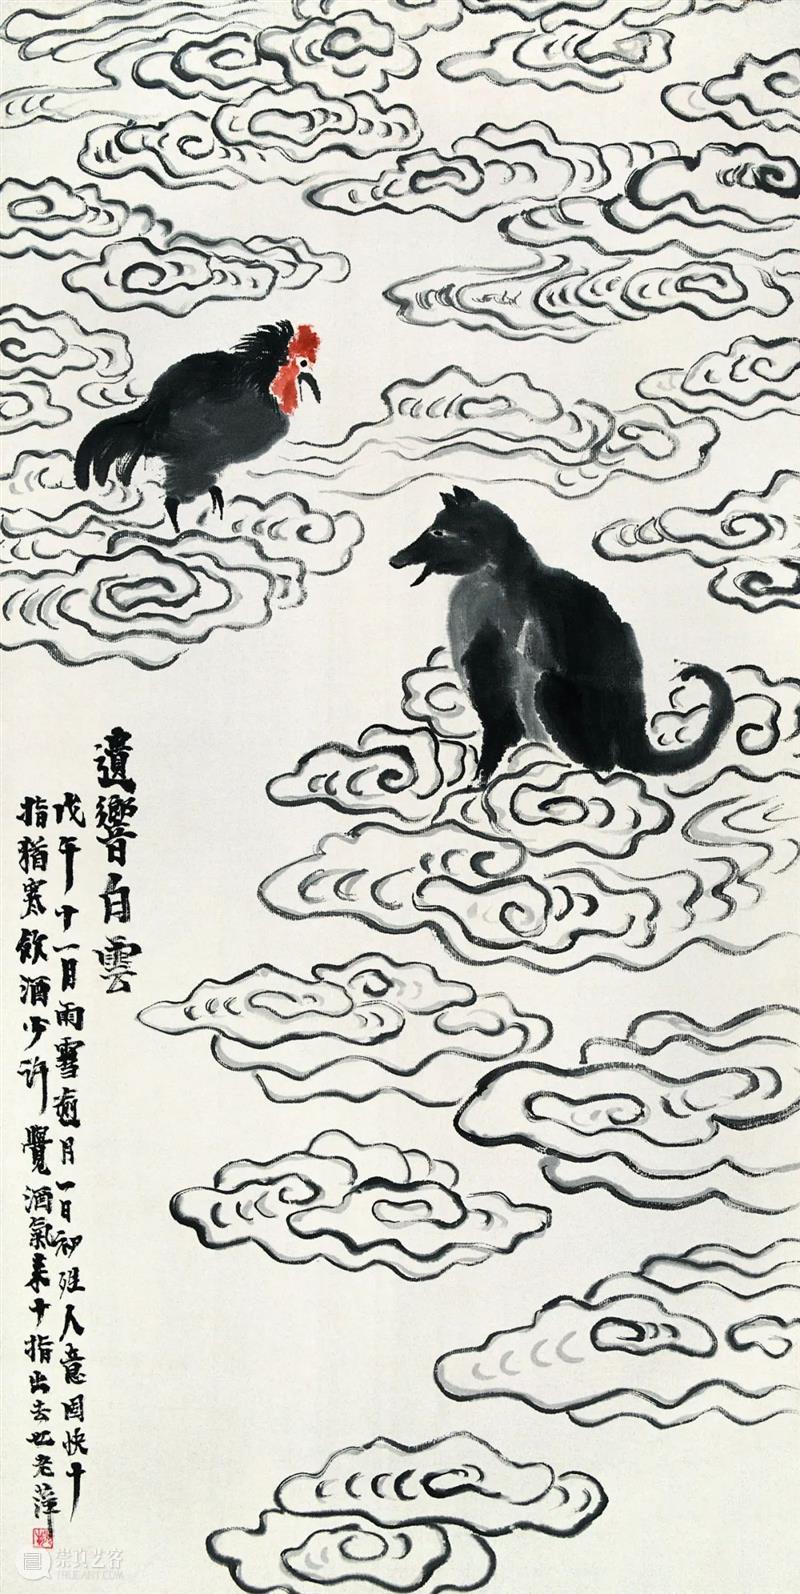 遺響白雲
戊午十一月雨雪逾月一日初人意固快十
指猶寒飲酒少許覺酒氣乘十指出去也老萍
崇真艺客
TRUEART.COM